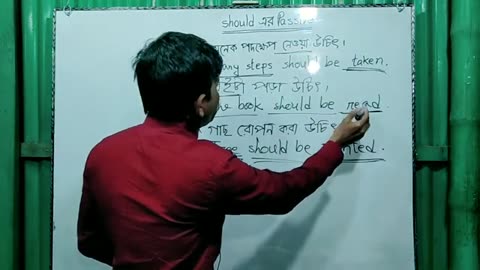 should এর Passive
পদক্ষেপ নেওয়া উচিৎ।
steps should be taken.
পড়া উচিৎ।
book should be read.
গাছ রোপন করা উচিৎ
should be